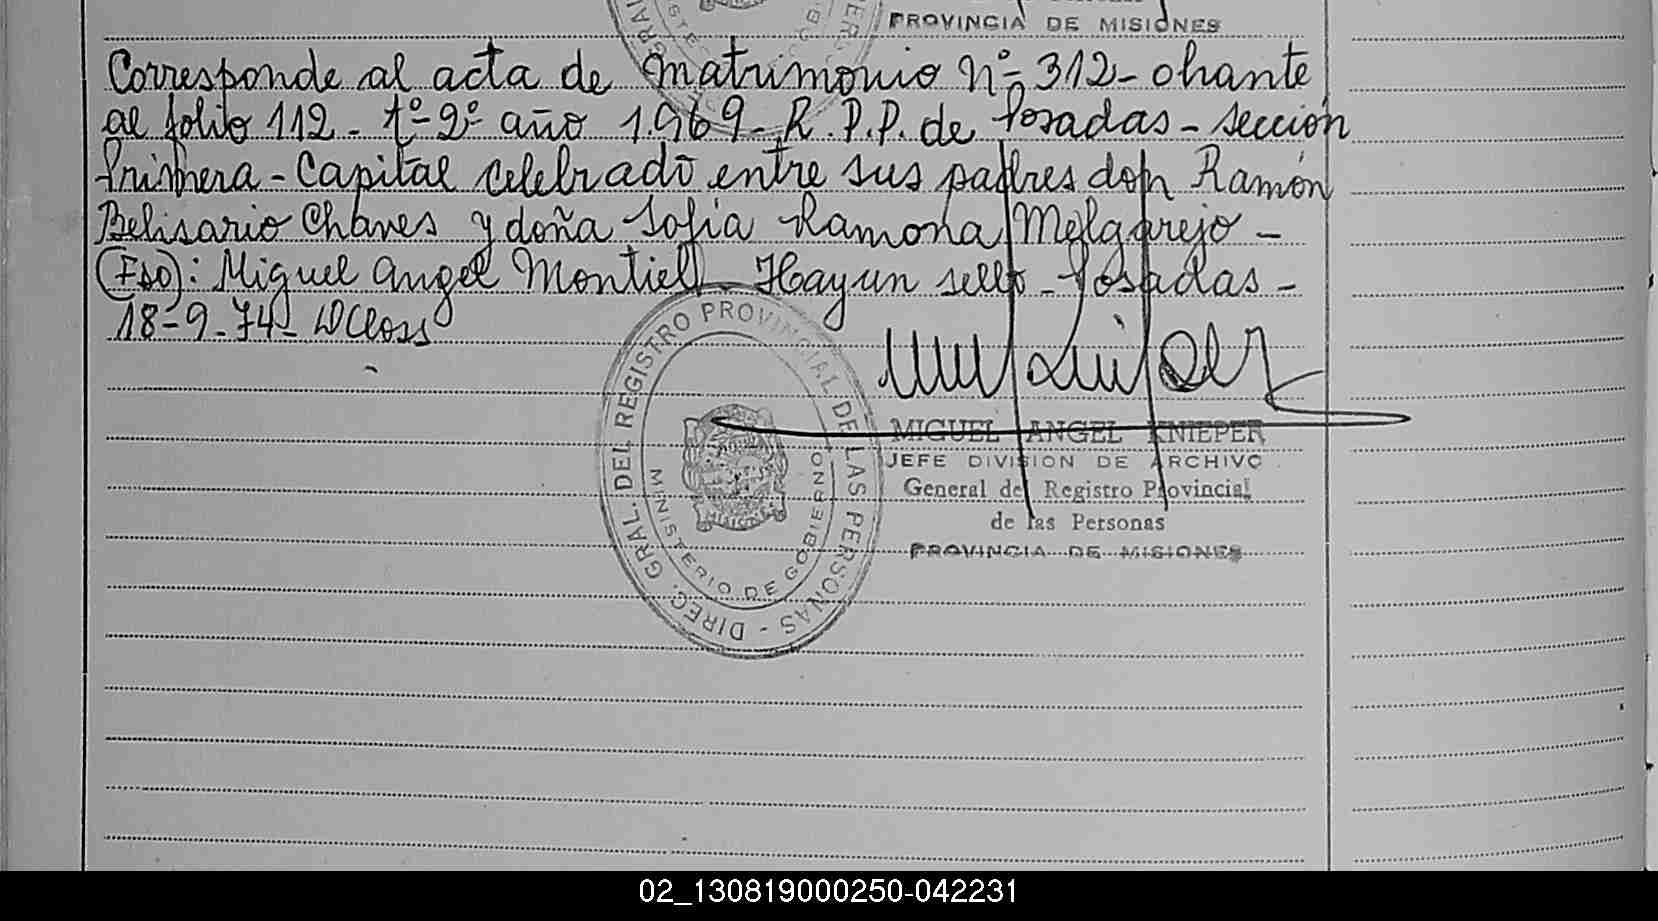 PROVINCIA DE MISIONES
Corresponde al acta de matrimonio Nº 312- obante
al folio 112 - tº- 2º año 1.969- R.P.P. de Posadas - sección
Primera - Capital celebrado entre sus padres don Ramón
Belisario Chaves y doña Sofia Ramona Melgarejo -
(Fdo): Miguel Angel Montiel - Hay un sello - Posadas -
18-9-74-
DIREC. GRAL. DEL REGISTRO PROVINCIAL DE LAS PERSONAS -
MINISTERIO DE GOBIERNO
MIGUEL ANGEL KNIEPER
JEFE DIVISION DE ARCHIVO
General del Registro Provincial
de las Personas
PROVINCIA DE MISIONES
02_130819000250-042231